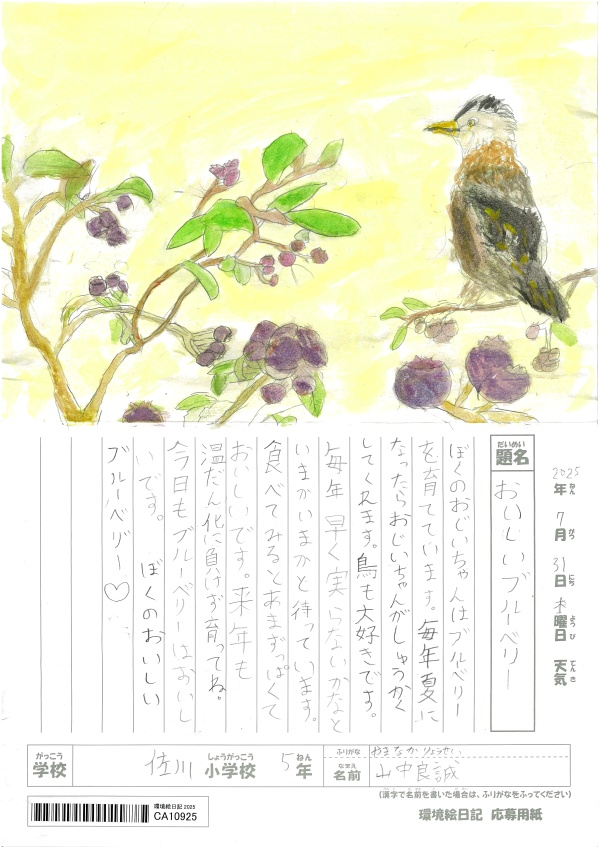 2025年ねん 7月がつ 31日にち 木曜日ようび 天気てんき
だいめい
題名
おいしいブルーベリー
ぼくのおじいちゃんはブルーベリー
を育てています。毎年夏に
なったらおじいちゃんがしゅうかく
してくれます。鳥も大好きです。
毎年早く実らないかなと
いまかいまかと待っています。
食べてみるとあまずっぱくて
おいしいです。来年も
温だん化に負けず育ってね。
今日もブルーベリーはおいし
いです。 ぼくのおいしい
ブルーベリー♡
がっこう
学校
佐川 小学校しょうがっこう 5年ねん
ふりがな
やまなかりょうせい
なまえ
名前
山中良誠
(漢字で名前を書いた場合は、ふりがなをふってください)
環境絵日記 2025
CA10925
環境絵日記 応募用紙